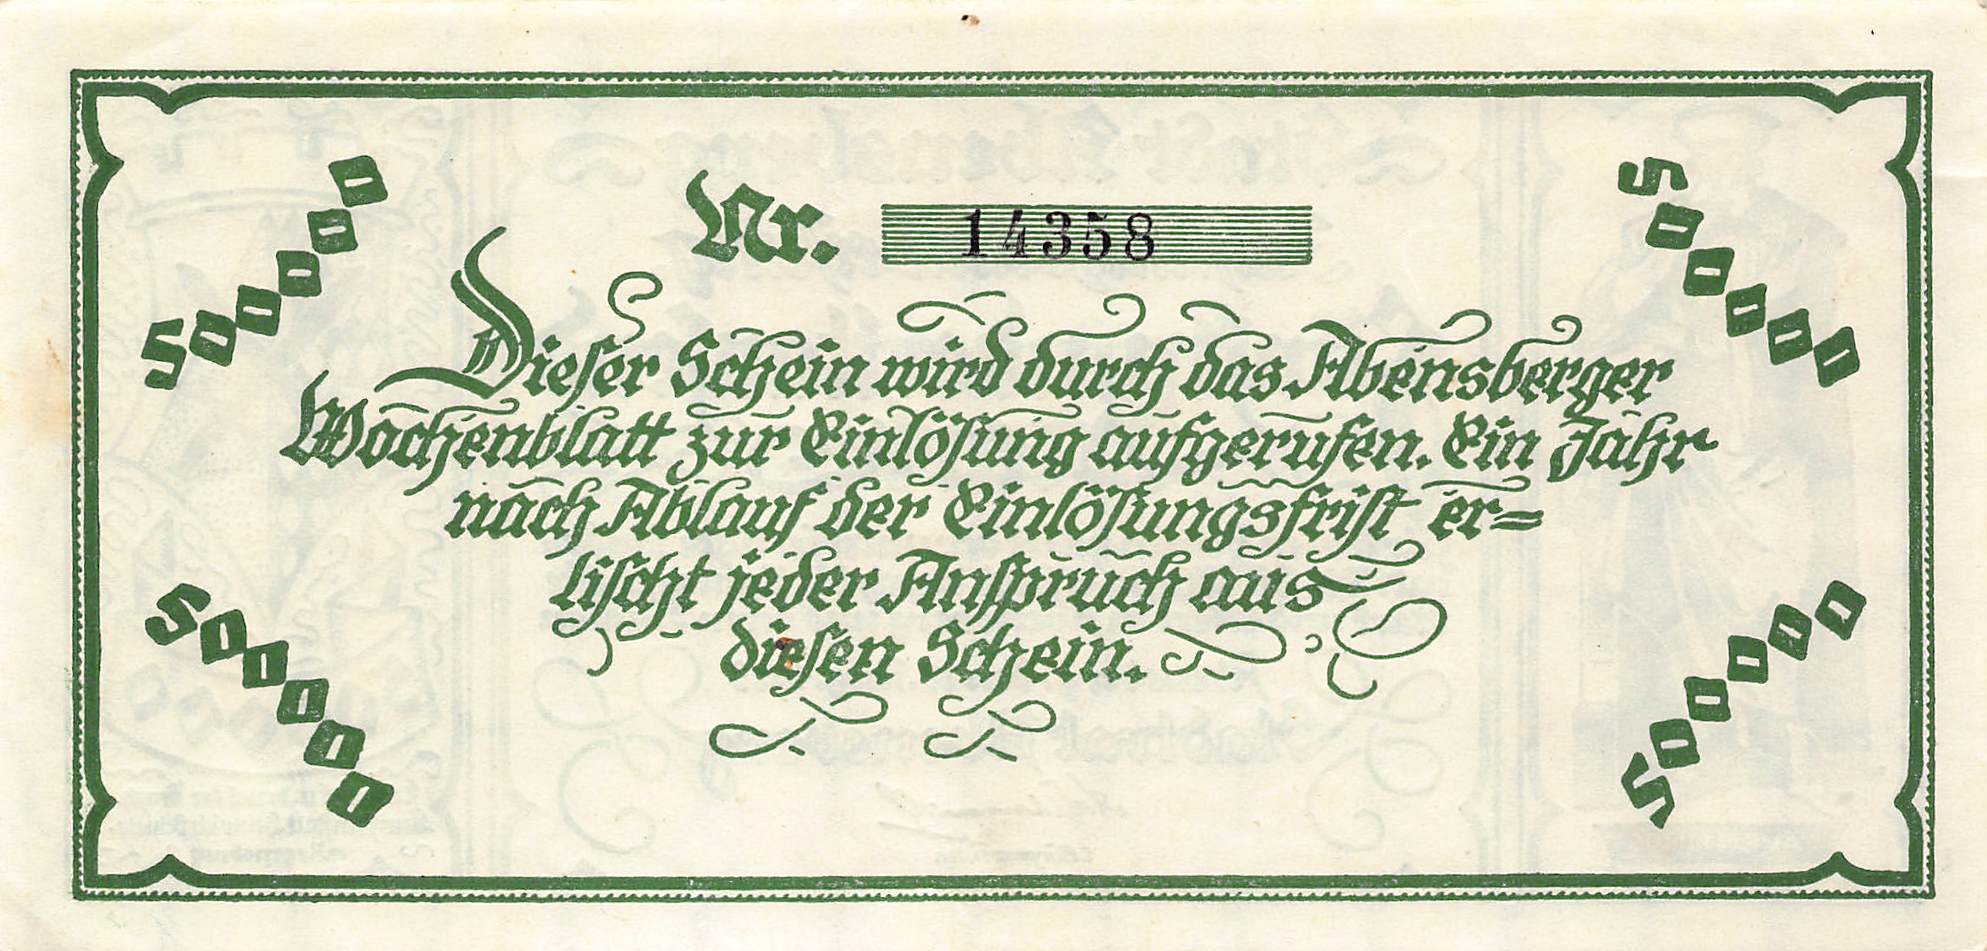 500000
Nr. 14358
500000
Dieser Schein wird durch das Abensberger
Wochenblatt zur Einlösung aufgerufen. Ein Jahr
nach Ablauf der Einlösungsfrist er=
lischt jeder Anspruch aus
diesen Schein.
500000
500000